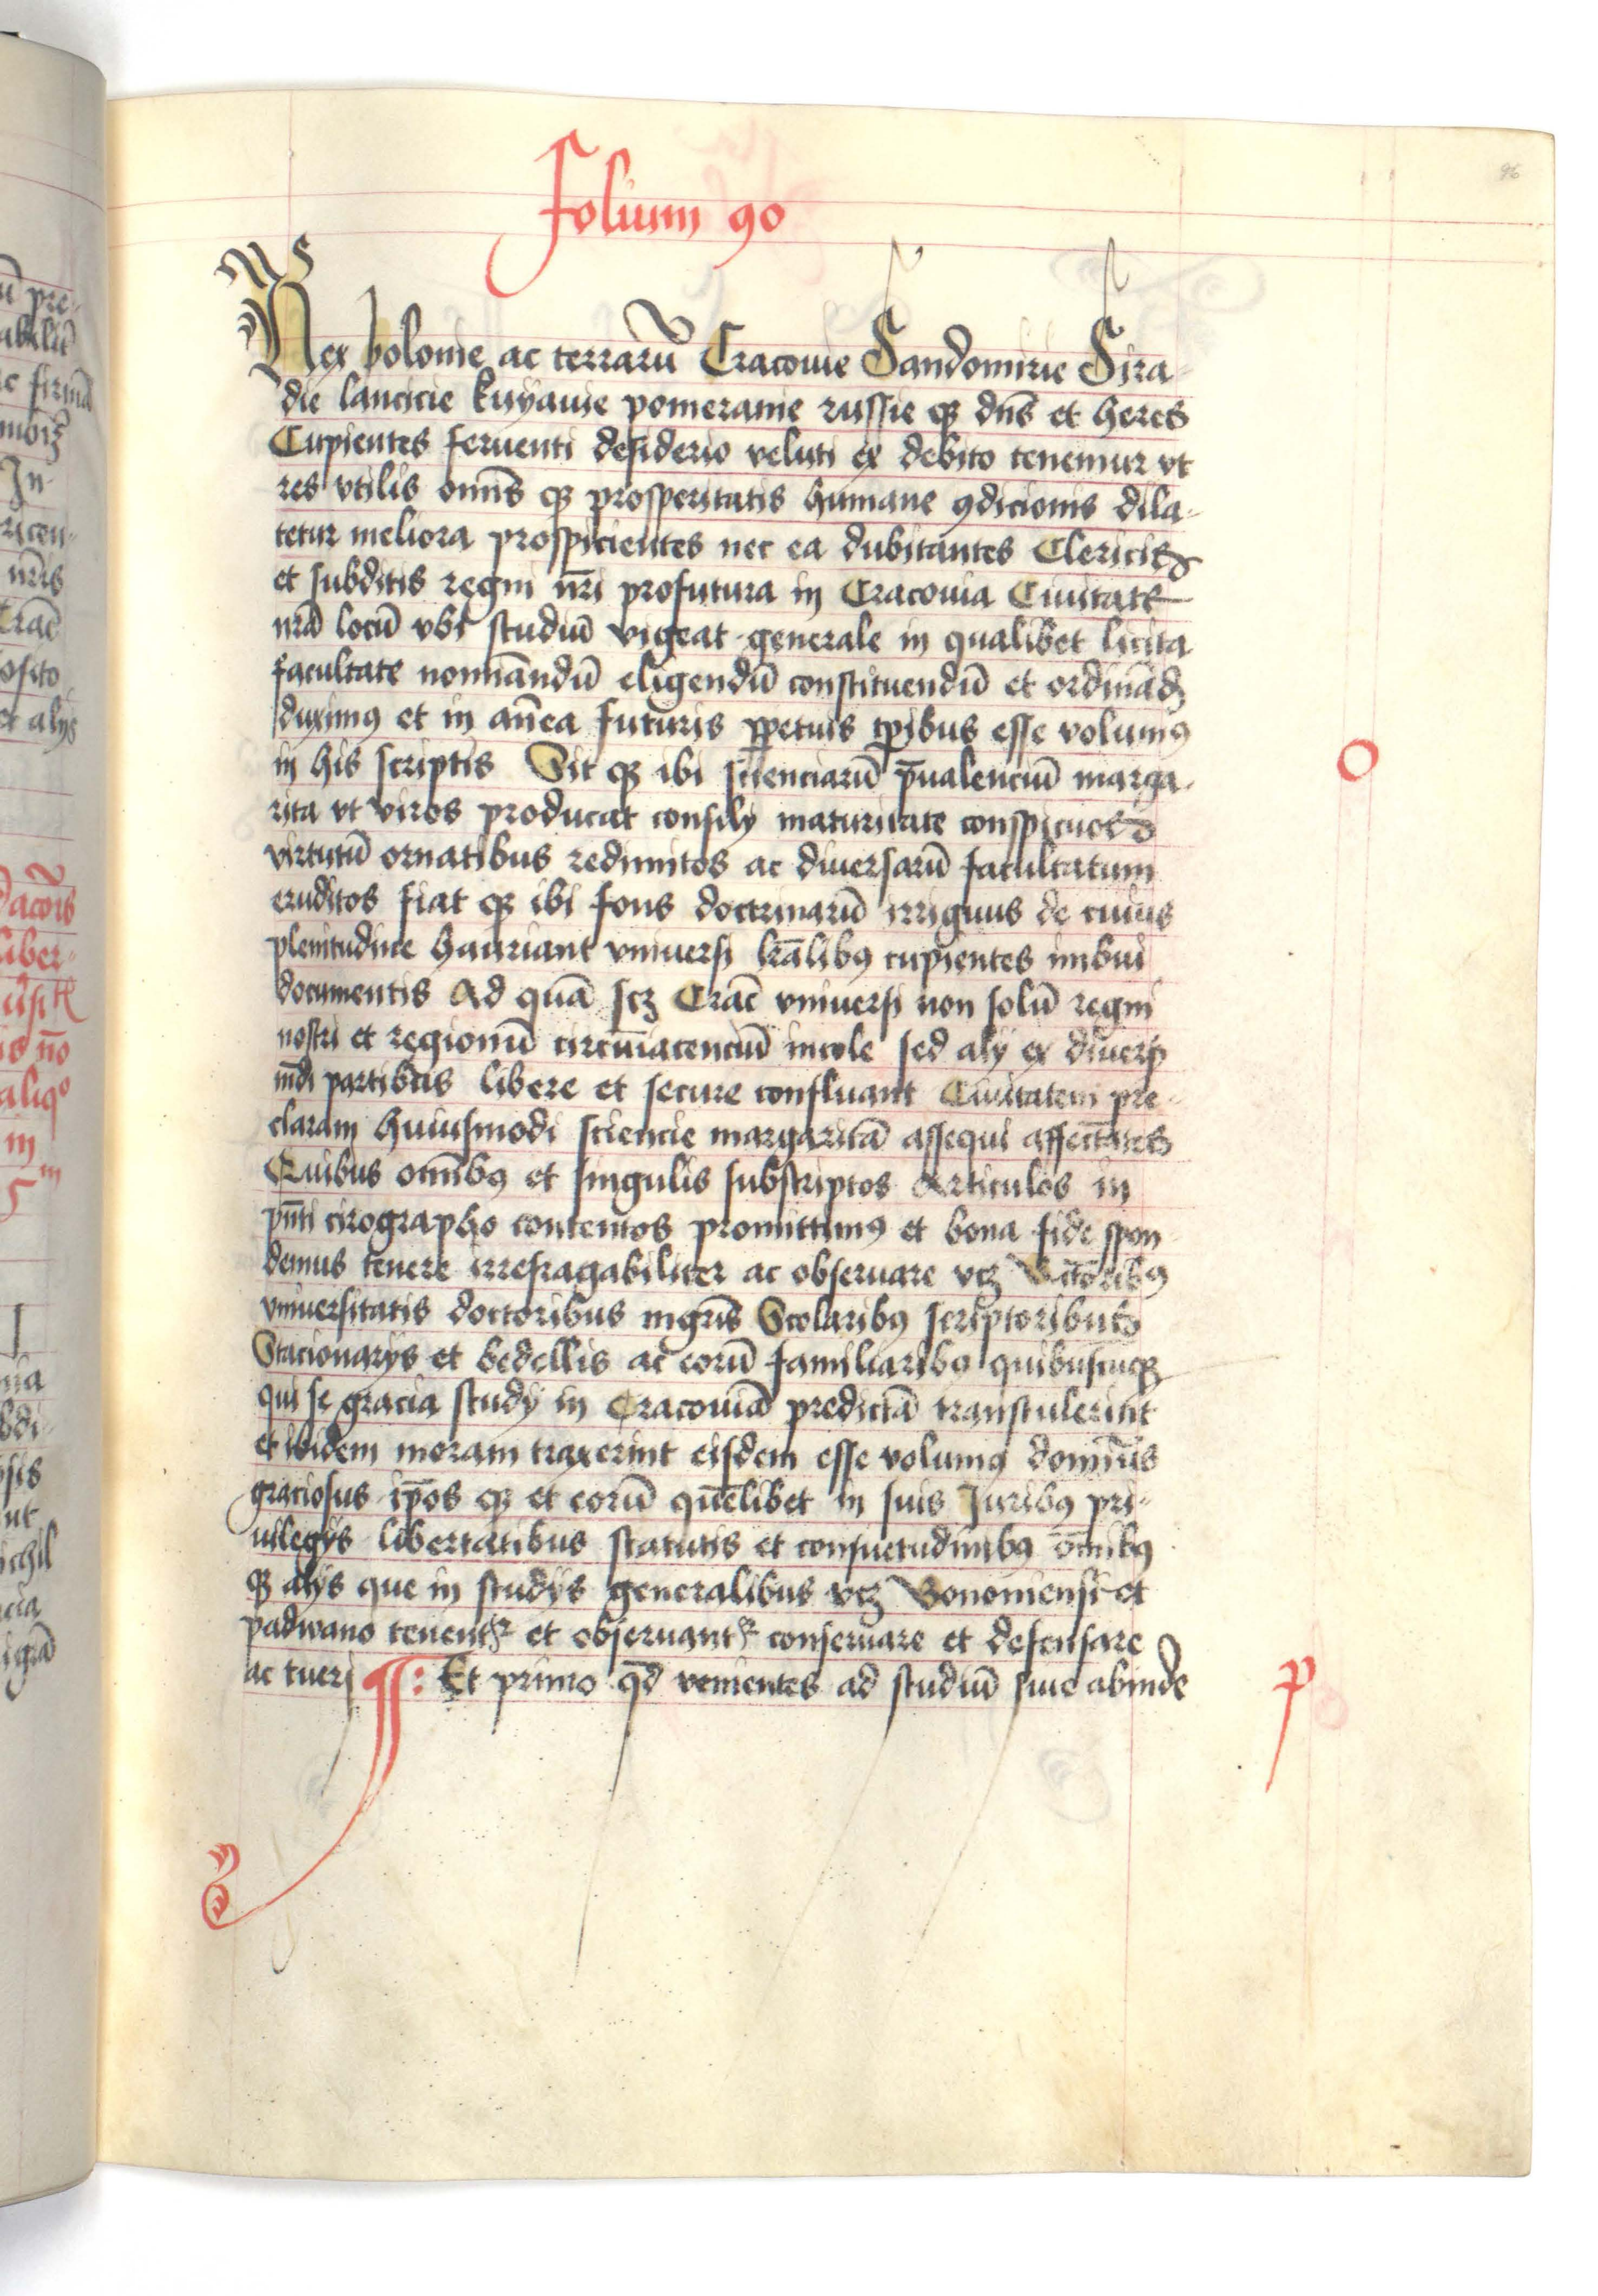 Folium 90
96
Rex polonie ac terrarū Cracouie Sandomirie Sira
die lancicie kuyauie pomeranie russie qȝ dn̄s et heres
Cupientes feruenti desiderio veluti ex debito tenemur vt
res vtilis omīs qȝ prosperitatis humane ꝯdicionis dila-
tetur meliora prospicientes nec ea dubitantes Clericis
et subditis regni nr̄i profutura in Cracouia Ciuitate
nrā locū vbi studiū vigeat generale in qualibet licita
facultate nominandū eligendū constituendū et ordinādȝ
duximꝰ et in antea futuris ꝑpetuis tꝑibus esse volumꝰ
in his scriptis Sit qȝ ibi scienciarū p̄ualenciū marga-
rita vt viros producat consilÿ maturitate conspicuos
virtutū ornatibus redimitos ac diuersarū facultatum
eruditos fiat qȝ ibi fons doctrinarū irriguus de cuius
plenitudine hauriant vniuersi lrālibꝰ cupientes imbui
documentis Ad quā scȝ Crac̄ vniuersi non solū regni
nostri et regionū circūiacenciū incole sed alÿ ex diuersis
mūdi partibus libere et secure confluant Ciuitatem pre-
claram huiusmodi sciencie margaritā assequi affectātes
Quibus omībꝰ et singulis subscriptos Articulos in
pn̄ti cirographo contentos promittimꝰ et bona fide spon
demus tenere irrefragabiliter ac obseruare vcȝ Rectoribꝰ
vniuersitatis doctoribus mgr̄is Scolaribꝰ scriptoribus
Stacionarÿs et bedellis ac eorū familiaribꝰ quibuscūqȝ
qui se gracia studÿ in Cracouiā predictā transtulerint
et ibidem moram traxerint eisdem esse volumꝰ dominꝰ
graciosus ip̄os qȝ et eorū quēlibet in suis Juribꝰ pri-
uilegÿs libertatibus statutis et consuetudinibꝰ om̄ibꝰ
qȝ alÿs que in studÿs generalibus vcȝ Bononiensi et
padwano tenentʳ et obseruantʳ conseruare et defensare
ac tueri ¶: Et primo qd̄ venientes ad studiū siue abinde
O
p